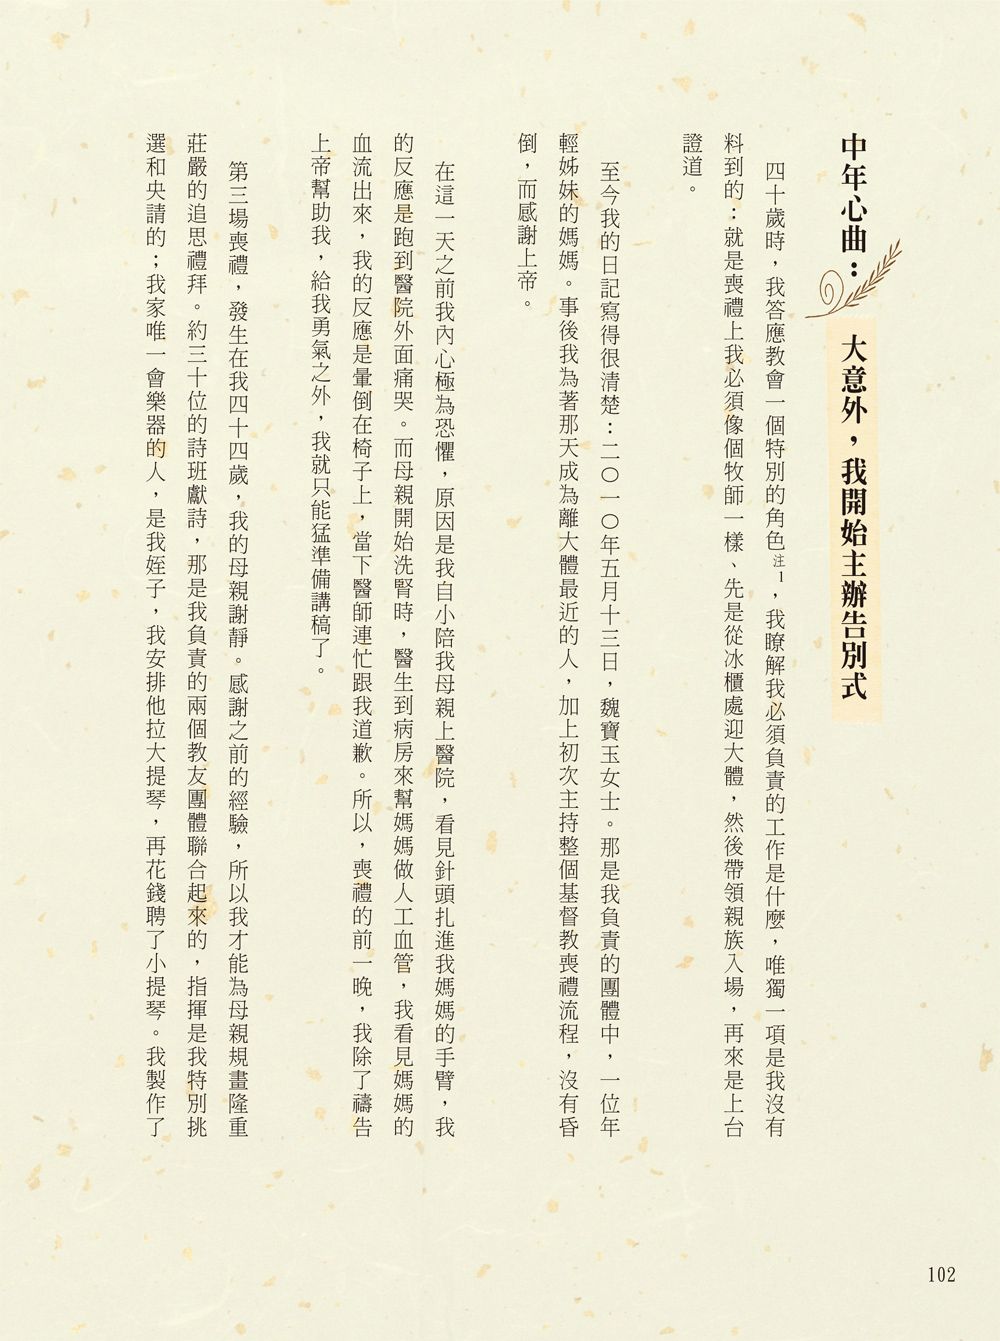 中年心曲：大意外，我開始主辦告別式
四十歲時，我答應教會一個特別的角色注1，我瞭解我必須負責的工作是什麼，唯獨一項是我沒有
料到的：就是喪禮上我必須像個牧師一樣、先是從冰櫃處迎大體，然後帶領親族入場，再來是上台
證道。
至今我的日記寫得很清楚：二〇一〇年五月十三日，魏寶玉女士。那是我負責的團體中，一位年
輕姊妹的媽媽。事後我為著那天成為離大體最近的人，加上初次主持整個基督教喪禮流程，沒有昏
倒，而感謝上帝。
在這一天之前我內心極為恐懼，原因是我自小陪我母親上醫院，看見針頭扎進我媽媽的手臂，我
的反應是跑到醫院外面痛哭。而母親開始洗腎時，醫生到病房來幫媽媽做人工血管，我看見媽媽的
血流出來，我的反應是暈倒在椅子上，當下醫師連忙跟我道歉。所以，喪禮的前一晚，我除了禱告
上帝幫助我，給我勇氣之外，我就只能猛準備講稿了。
第三場喪禮，發生在我四十四歲，我的母親謝靜。感謝之前的經驗，所以我才能為母親規畫隆重
莊嚴的追思禮拜。約三十位的詩班獻詩，那是我負責的兩個教友團體聯合起來的，指揮是我特別挑
選和央請的；我家唯一會樂器的人，是我姪子，我安排他拉大提琴，再花錢聘了小提琴。我製作了
102